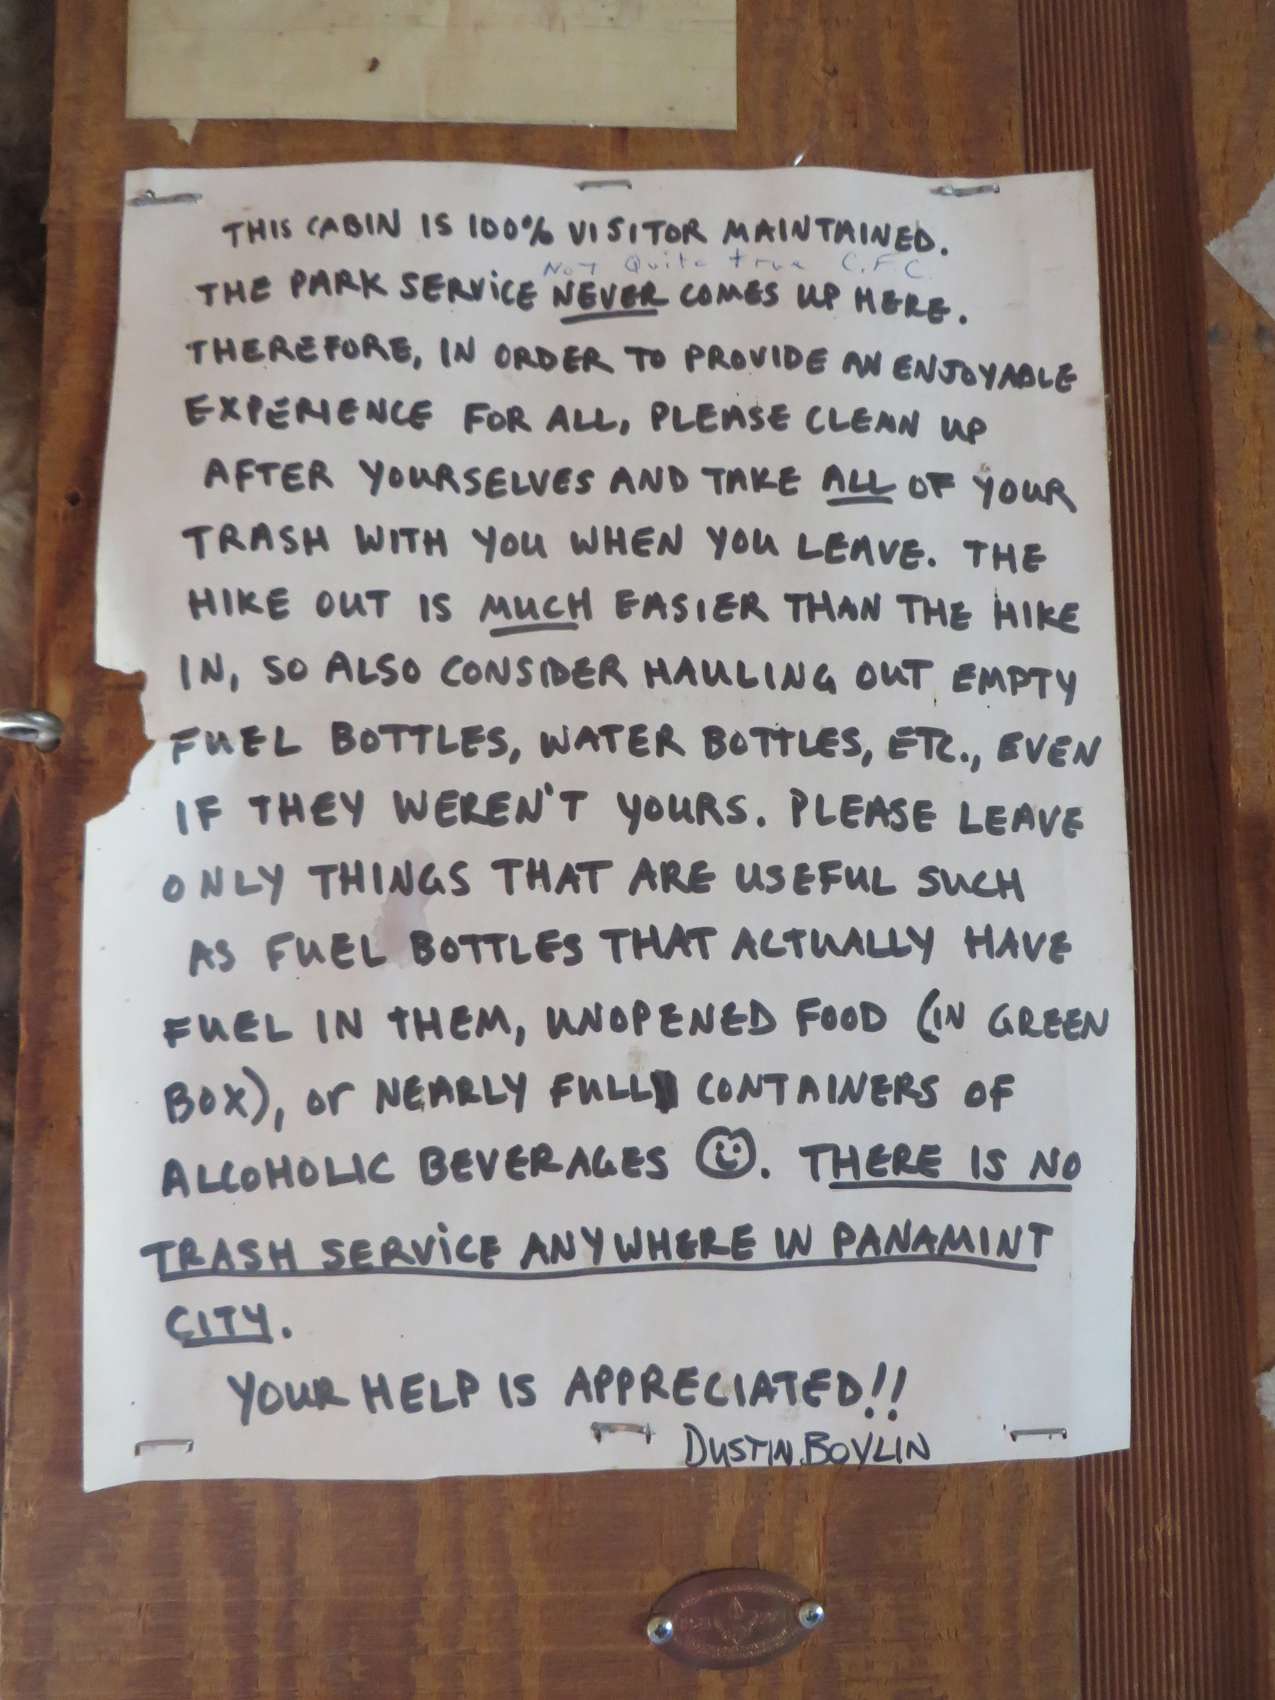 THIS CABIN IS 100% VISITOR MAINTAINED.
Not Quite true C.F.C.
THE PARK SERVICE NEVER COMES UP HERE.
THEREFORE, IN ORDER TO PROVIDE AN ENJOYABLE
EXPERIENCE FOR ALL, PLEASE CLEAN UP
AFTER YOURSELVES AND TAKE ALL OF YOUR
TRASH WITH YOU WHEN YOU LEAVE. THE
HIKE OUT IS MUCH EASIER THAN THE HIKE
IN, SO ALSO CONSIDER HAULING OUT EMPTY
FUEL BOTTLES, WATER BOTTLES, ETC., EVEN
IF THEY WEREN'T YOURS. PLEASE LEAVE
ONLY THINGS THAT ARE USEFUL SUCH
AS FUEL BOTTLES THAT ACTUALLY HAVE
FUEL IN THEM, UNOPENED FOOD (IN GREEN
BOX), or NEARLY FULL CONTAINERS OF
ALCOHOLIC BEVERAGES ☺. THERE IS NO
TRASH SERVICE ANYWHERE IN PANAMINT
CITY.
YOUR HELP IS APPRECIATED!!
DUSTIN BOYLIN